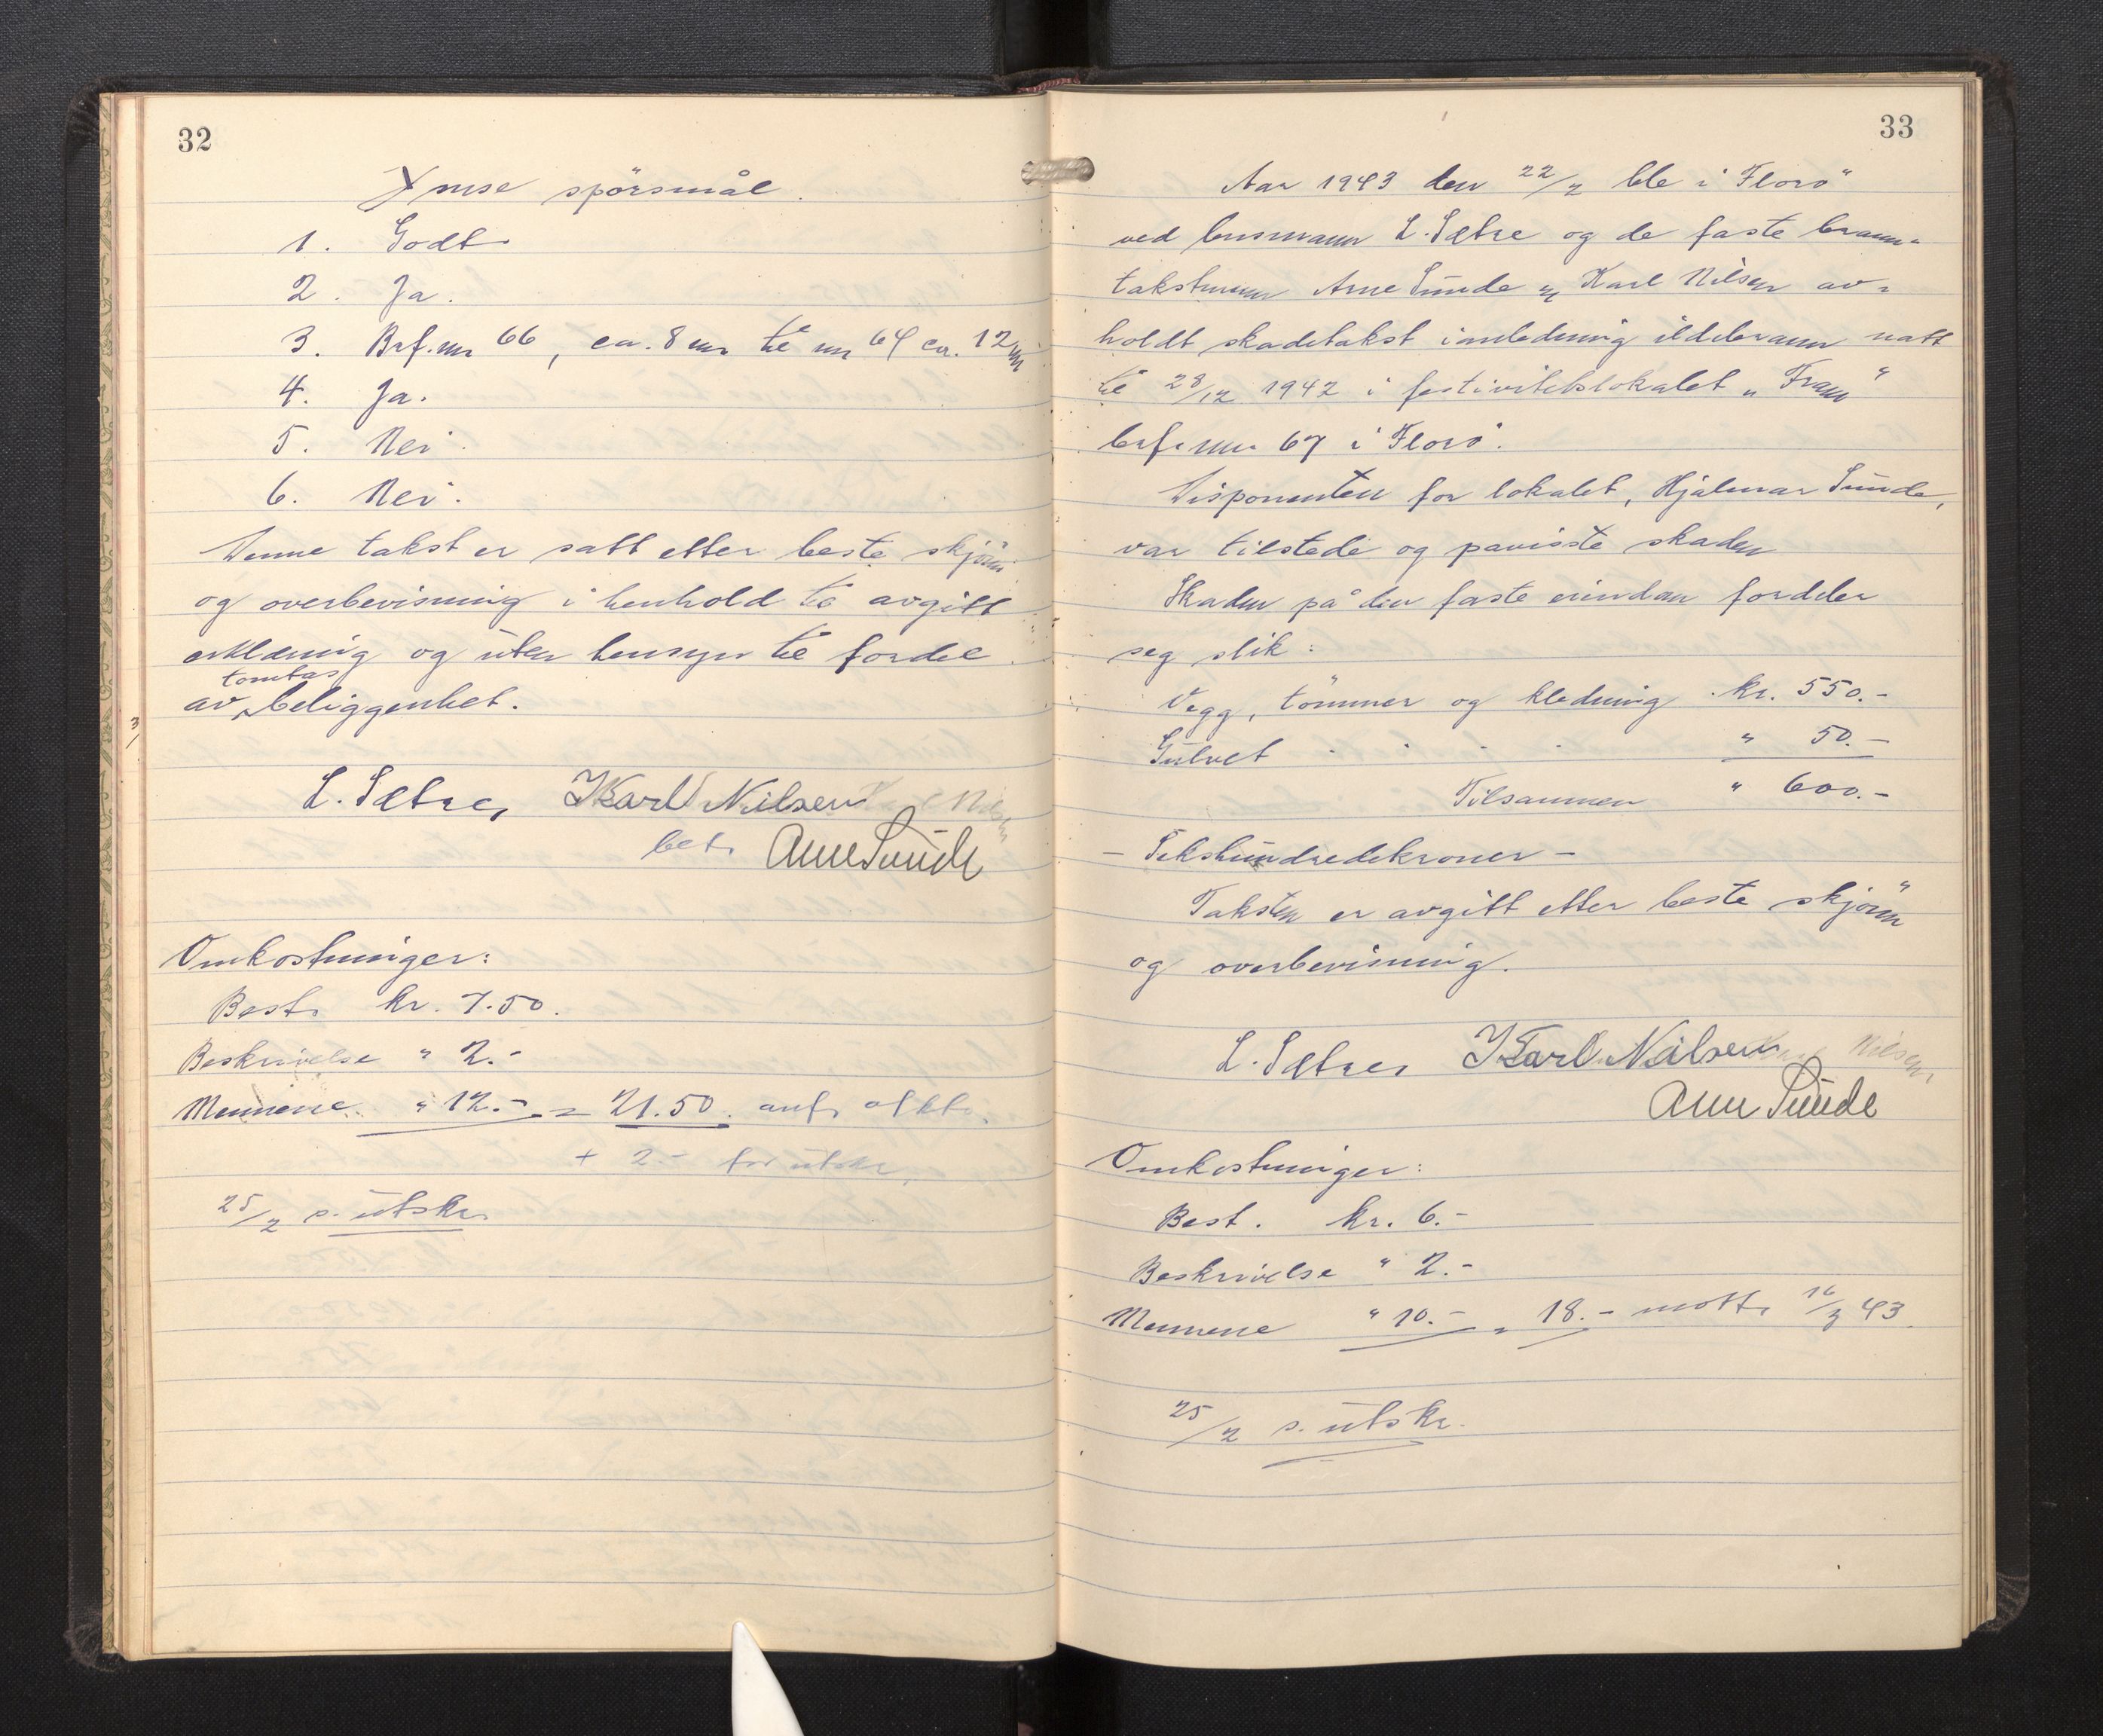 32
Ymse spörsmål.
1. Godt.
2. Ja.
3. Brf.nr 66, ca. 8 m til nr 64 ca. 12 m
4. Ja.
5. Nei.
6. Nei.
Denne takst er satt etter beste skjönn
og overbevisning i henhold til avgitt
erklæring og uten hensyn til fordel
tomtas
av beliggenhet.
L. Sætre, Karl Nilsen
bet. Arne Sunde
Omkostninger:
Best. kr. 7.50.
Beskrivelse " 2.-
Mennene " 12.- = 21.50.
+ 2.- for utskr.
25/2 s. utskr.
33
Aar 1943 den 22/2 ble i Florö
ved lensmann L. Sætre og de faste brann-
takstmenn Arne Sunde og Karl Nilsen av-
holdt skadetakst i anledning ildebrann natt
til 28/12 1942 i festivitetslokalet "Fram"
brf. nr. 67 i Florö.
Disponenten for lokalet, Hjalmar Sunde,
var tilstede og paviste skaden
Skaden på den faste eiendom fordeler
seg slik:
Vegg, tömmer og kledning kr. 550.-
Gulvet " 50.-
Tilsammen " 600.-
- Sekshundredekroner -
Taksten er avgitt etter beste skjönn
og overbevisning.
L. Sætre, Karl Nilsen Karl Nilsen
Arne Sunde
Omkostninger:
Best. kr. 6.-
Beskrivelse " 2.-
Mennene " 10.- = 18.- mott. 16/3 43.
25/2 s. utskr.